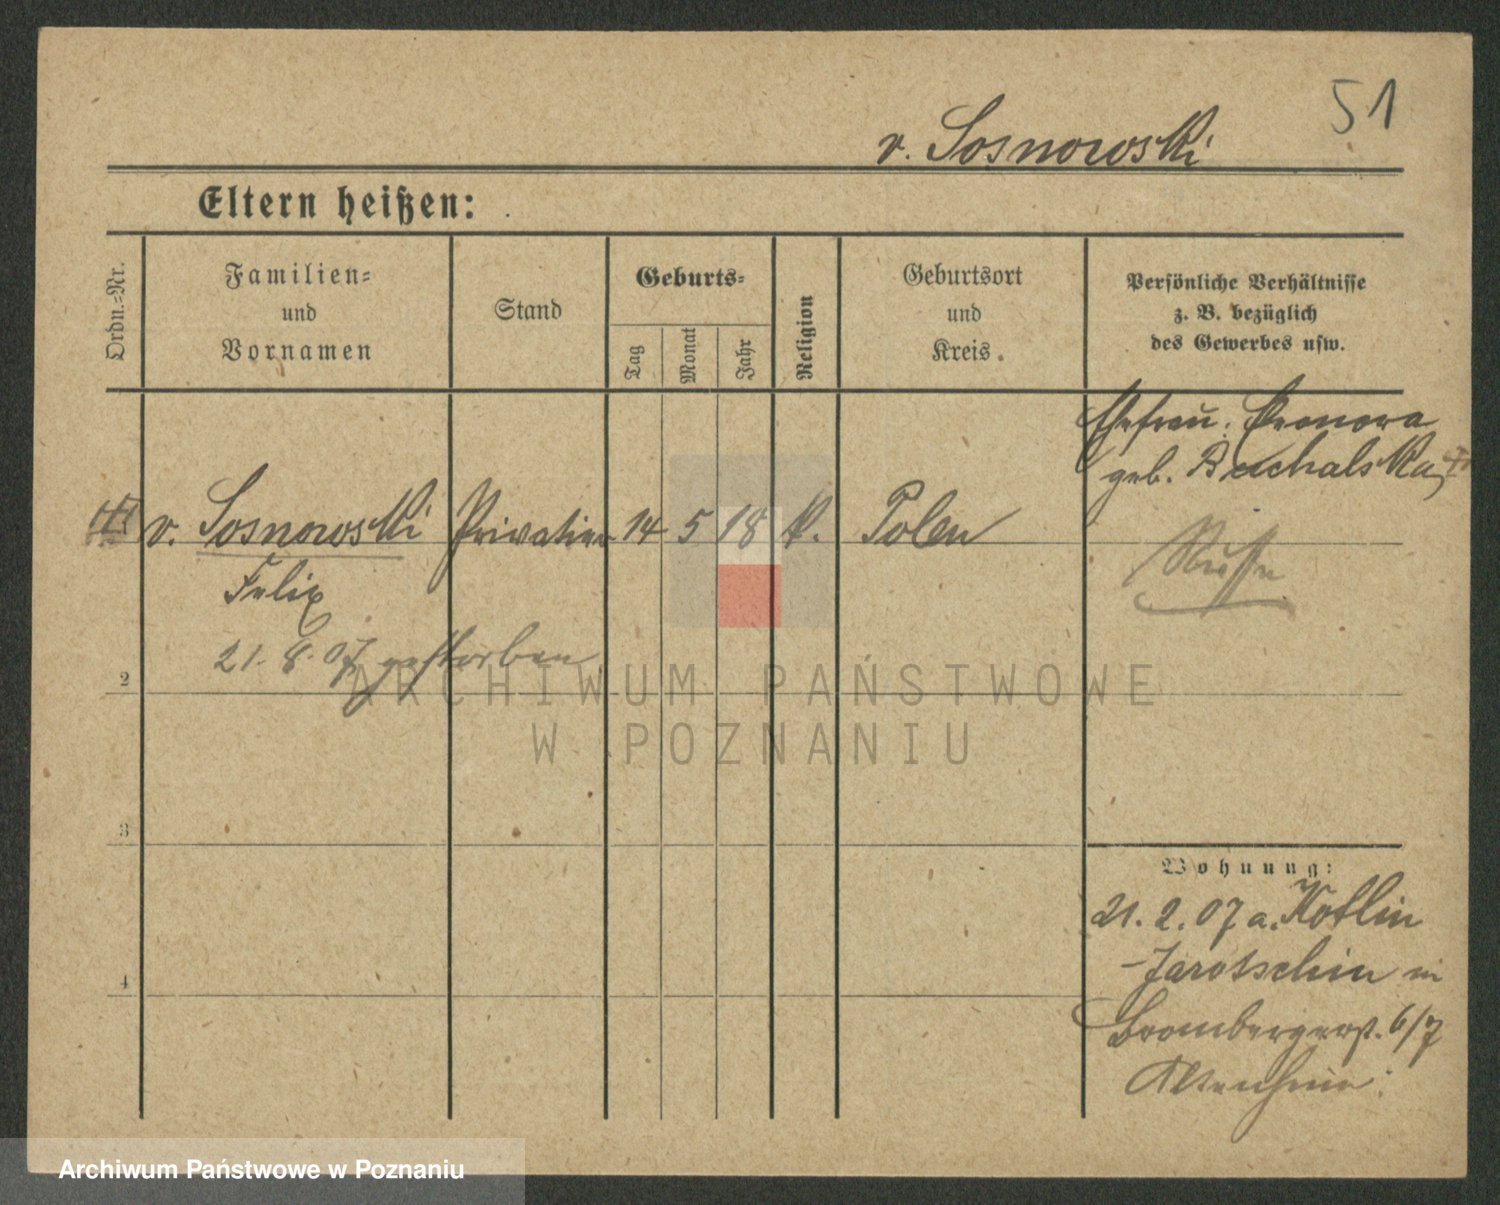 51
v. Sosnowski
Eltern heißen:
Ordn.=Nr.
Familien=
und
Vornamen
Stand
Geburts=
Tag
Monat
Jahr
Religion
Geburtsort
und
Kreis.
Persönliche Verhältnisse
z. B. bezüglich
des Gewerbes usw.
Ehefrau: Leonora
geb.
v. Sosnowski Privatier 14 5 18 k. Polen
Russe
Felix
21. 8. 07 gestorben
2
3
4
Wohnung:
21. 2. 07 a. Kotlin
-Jarotschin in
Brombergerst. 6/7
Altenheim.
ARCHIWUM PAŃSTWOWE
W POZNANIU
Archiwum Państwowe w Poznaniu